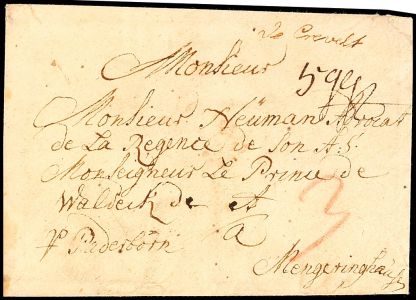 De Crevelt
Monsieur
Monsieur Neüman Avocat
de La Regence de Son A: S:
Monseigneur Le Prince de
Waldeck de et
a
p Paderborn
Mengeringhausen
3